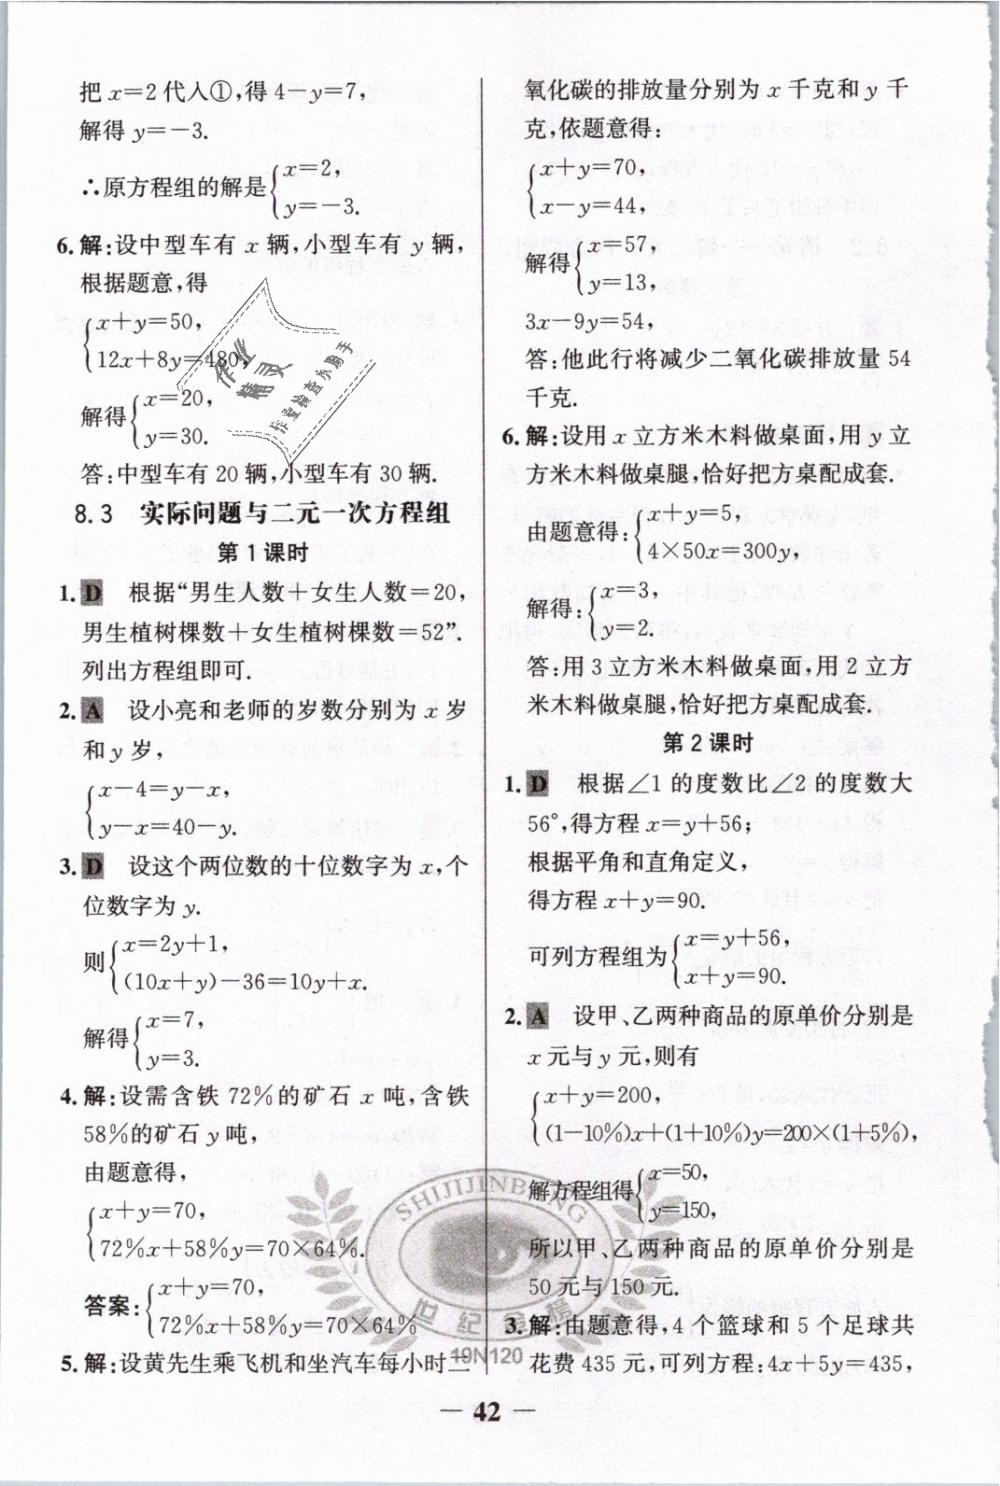 把 x=2 代入①,得 4-y=7,
解得 y=-3.
∴原方程组的解是{x=2,
y=-3.
6. 解:设中型车有 x 辆,小型车有 y 辆,
根据题意,得
{x+y=50,
12x+8y=480,
解得{x=20,
y=30.
答:中型车有 20 辆,小型车有 30 辆.
8.3 实际问题与二元一次方程组
第 1 课时
1. D 根据“男生人数+女生人数=20,
男生植树棵数+女生植树棵数=52”.
列出方程组即可.
2. A 设小亮和老师的岁数分别为 x 岁
和 y 岁,
{x-4=y-x,
y-x=40-y.
3. D 设这个两位数的十位数字为 x,个
位数字为 y.
则{x=2y+1,
(10x+y)-36=10y+x.
解得{x=7,
y=3.
4. 解:设需含铁 72%的矿石 x 吨,含铁
58%的矿石 y 吨,
由题意得,
{x+y=70,
72%x+58%y=70×64%.
答案:{x+y=70,
72%x+58%y=70×64%
5. 解:设黄先生乘飞机和坐汽车每小时二
氧化碳的排放量分别为 x 千克和 y 千
克,依题意得:
{x+y=70,
x-y=44,
解得{x=57,
y=13,
3x-9y=54,
答:他此行将减少二氧化碳排放量 54
千克.
6. 解:设用 x 立方米木料做桌面,用 y 立
方米木料做桌腿,恰好把方桌配成套.
由题意得:{x+y=5,
4×50x=300y,
解得:{x=3,
y=2.
答:用 3 立方米木料做桌面,用 2 立方
米木料做桌腿,恰好把方桌配成套.
第 2 课时
1. D 根据∠1 的度数比∠2 的度数大
56°,得方程 x=y+56;
根据平角和直角定义,
得方程 x+y=90.
可列方程组为{x=y+56,
x+y=90.
2. A 设甲、乙两种商品的原单价分别是
x 元与 y 元,则有
{x+y=200,
(1-10%)x+(1+10%)y=200×(1+5%),
解方程组得{x=50,
y=150,
所以甲、乙两种商品的原单价分别是
50 元与 150 元.
3. 解:由题意得,4 个篮球和 5 个足球共
花费 435 元,可列方程:4x+5y=435,
作业
精灵
作业检查小助手
SHIJIJINBANG
世纪金榜
19N120
— 42 —